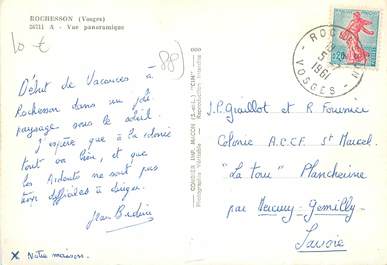 ROCHESSON (Vosges)
26711 A - Vue panoramique
10 €
88
Début de Vacances à
Rochesson dans un joli
paysage sous le soleil.
J'espère que à la colonie
tout va bien, et que
les ne sont pas
trop difficiles à diriger.
Jean
x Notre maison.
COMBIER IMP. MACON (S.-et-L.) "CIM"
Photographie Véritable - Reproduction Interdite
ROCHESSON
5
1961
VOSGES
0,20
J.P. Graillot et R. Fournier
Colonie A.C.C.F. St Marcel
"La tour" Plancherine
par Mercury-Gemilly
Savoie